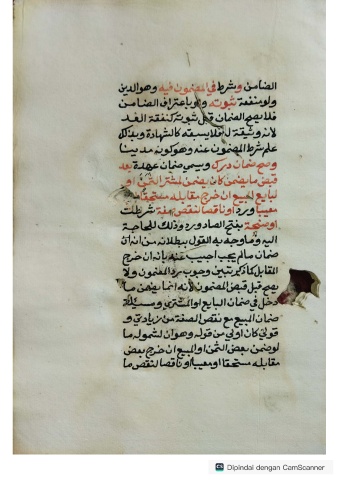 الضامن وشرط في المضمون فيه وهو الدين
ولو منفعة ثبوته ولو باعتراف الضامن
فلا يصح الضمان قبل ثبوته كنفقة الغد
لانه وثيقة له فلا يسبقه كالشهادة وبذلك
علم شرط المضمون عنه وهو كونه مدينا
وصح ضمان درك ويسمى ضمان عهدة بعد
قبض ما يضمن كان يضمن لمشتر الثمن او
لبايع المبيع ان خرج مقابله مستحقا او
معيبا ورد او ناقصا لنقص صفة شرطت
او صنجة بفتح الصاد ورد وذلك للحاجة
اليه وما وجه به القول ببطلانه من انه
ضمان ما لم يجب اجيب عنه بانه ان خرج
المقابل كما ذكر تبين وجوب رد المضمون ولا
يصح قبل قبض المضمون لانه انما يضمن ما
دخل في ضمان البايع او المشتري ومسئلة
ضمان المبيع مع نقص الصفة من زيادتي و
قولي كان اولى من قوله وهو ان لشموله ما
لو ضمن بعض الثمن او المبيع ان خرج بعض
مقابله مستحقا او معيبا او ناقصا لنقص ما
Dipindai dengan CamScanner